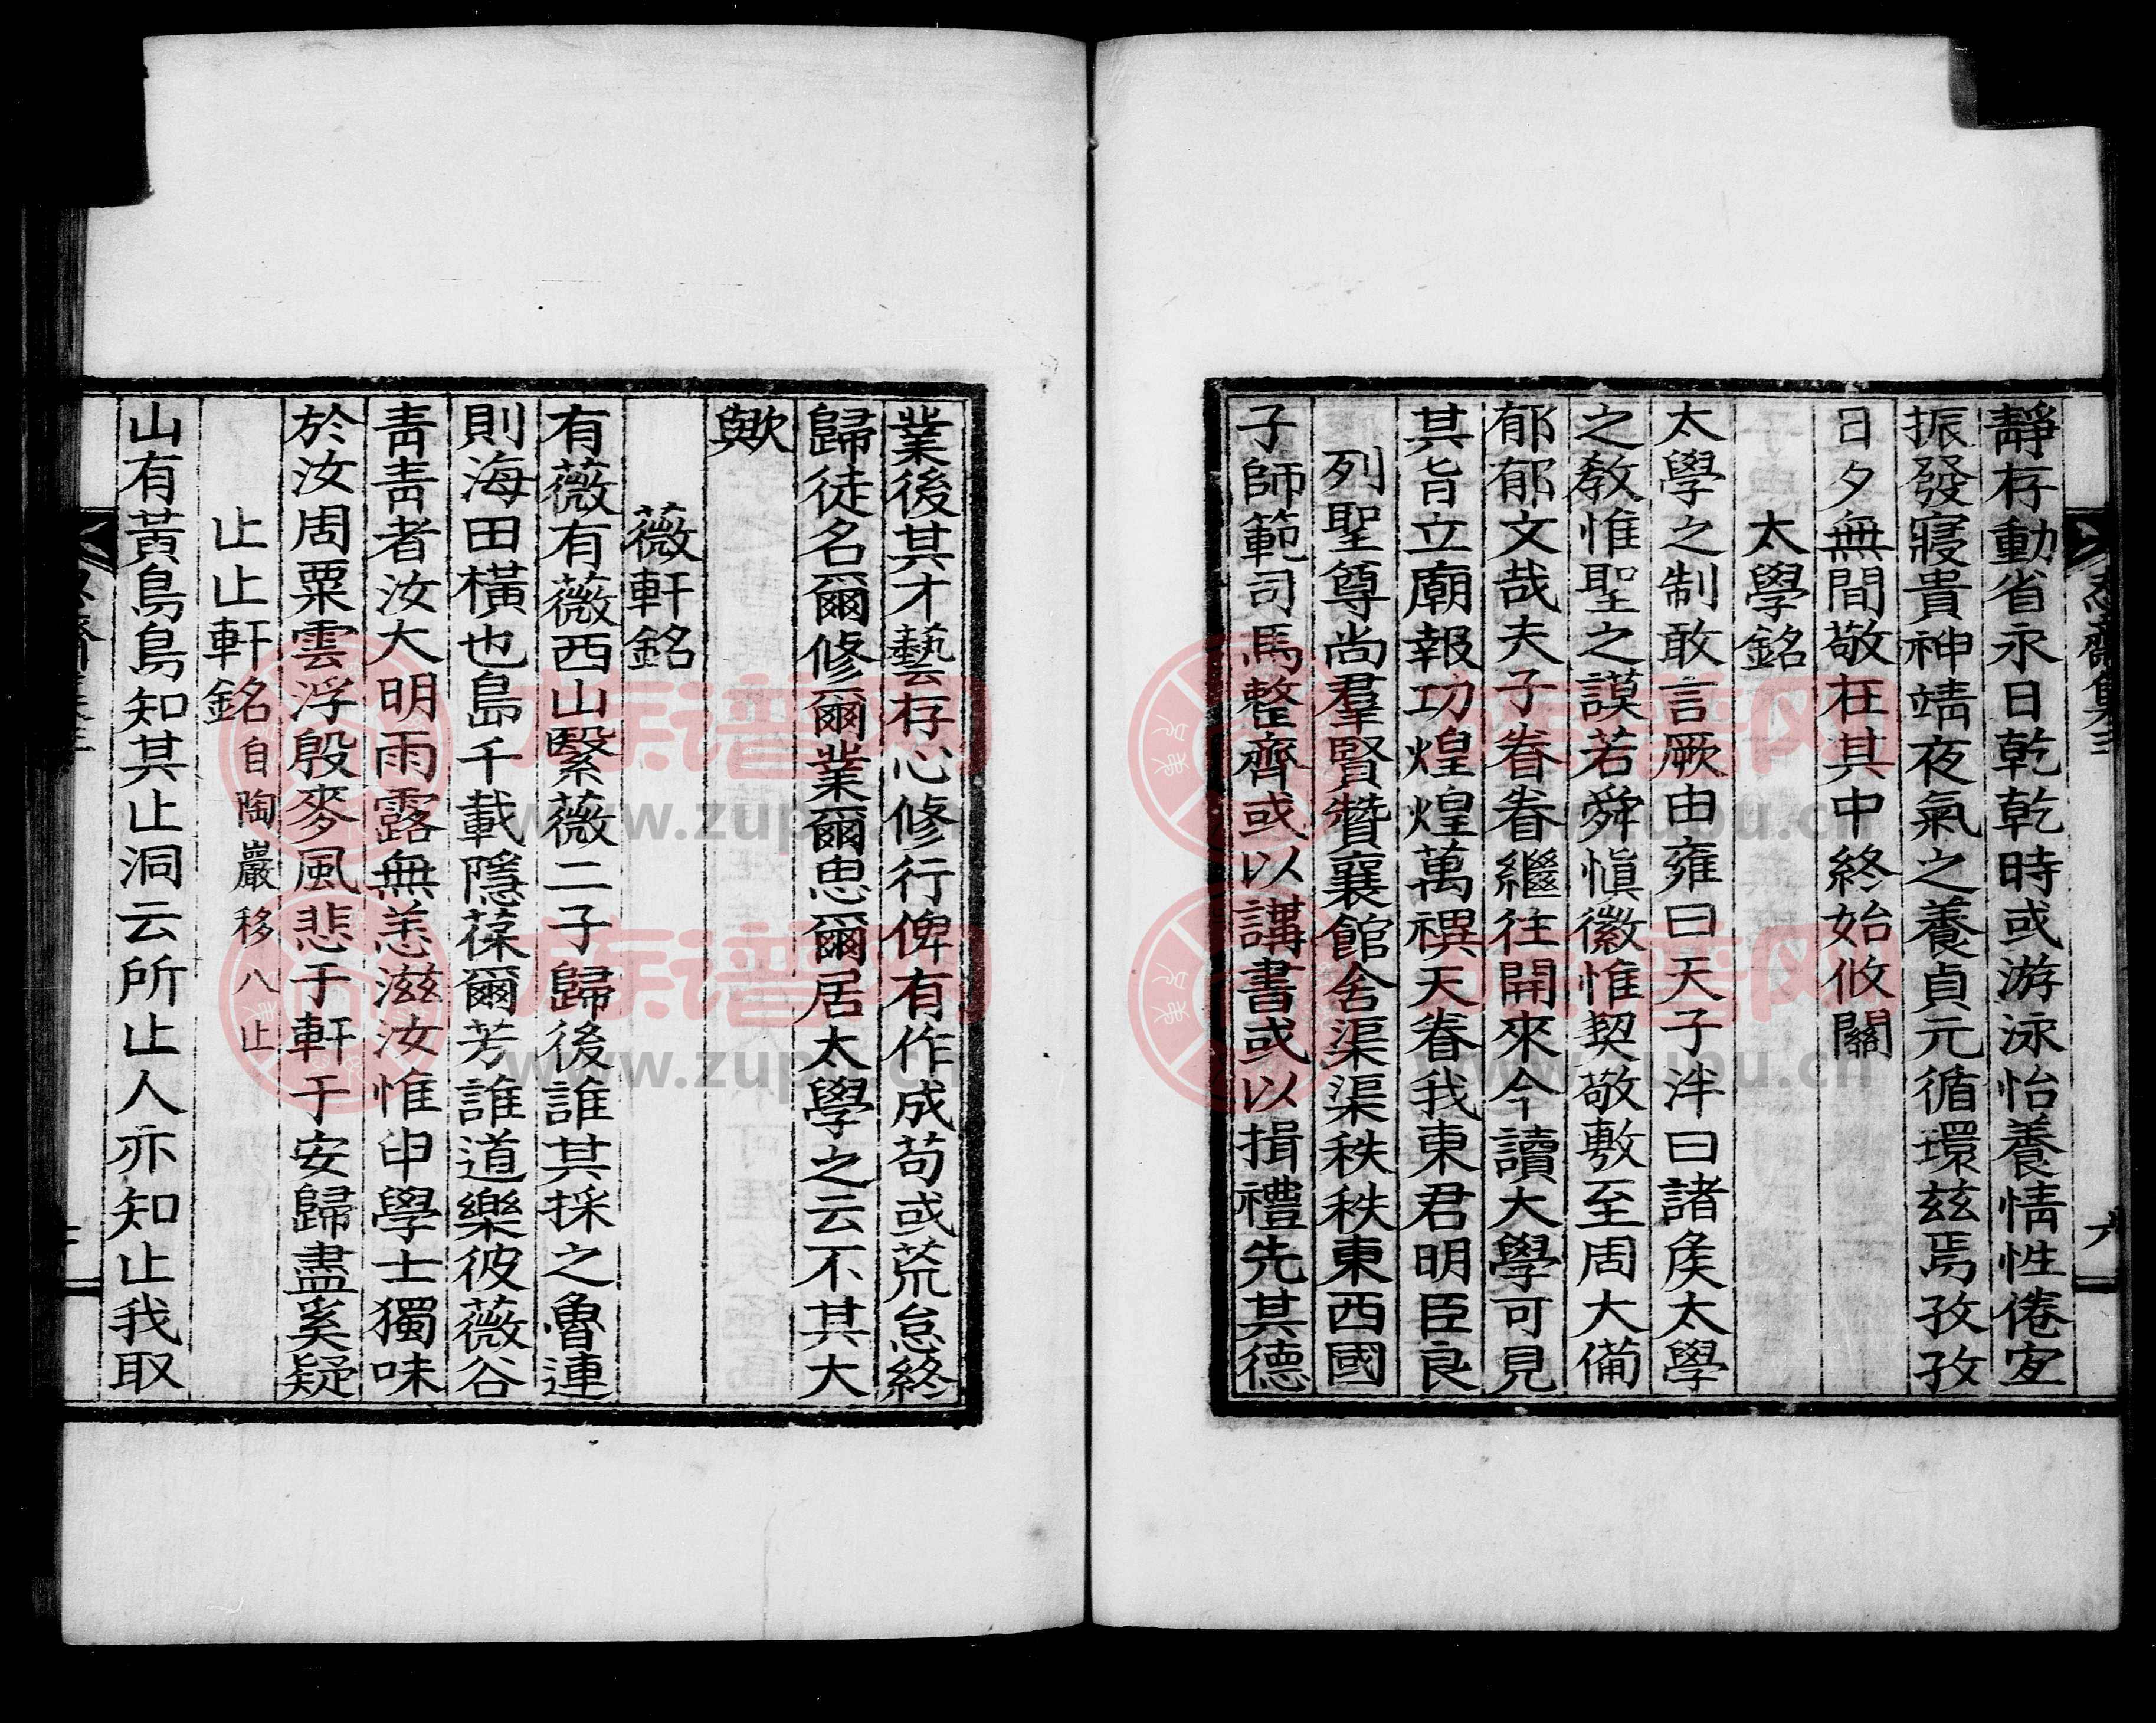 靜存動省永日乾乾時或游泳怡養情性倦㝎
振發寢貴神靖夜氣之養貞元循環玆焉孜孜
日夕無間敬在其中終始攸關
太學銘
太學之制敢言厥由雍曰天子泮曰諸矦太學
之敎惟聖之謨若舜愼徽惟契敬敷至周大備
郁郁文哉夫子眷眷繼往開來今讀大學可見
其旨立廟報功煌煌萬禩天眷我東君明臣良
列聖尊尚羣賢贊襄館舍渠渠秩秩東西國
子師範司馬整齊或以講書或以揖禮先其德
業後其才藝存心修行俾有作成苟或荒怠終
歸徒名爾修爾業爾思爾居太學之云不其大
歟
薇軒銘
有薇有薇西山繄薇二子歸後誰其採之魯連
則海田橫也島千載隱葆爾芳誰道樂彼薇谷
靑靑者汝大明雨露無恙滋汝惟申學士獨味
於汝周粟雲浮殷麥風悲于軒于安歸盡奚疑
止止軒銘自陶巖移八止
山有黃鳥鳥知其止洞云所止人亦知止我取
族谱网
www.zupu.cn
族谱网
www.zupu.cn
族谱网
www.zupu.cn
族谱网
www.zupu.cn